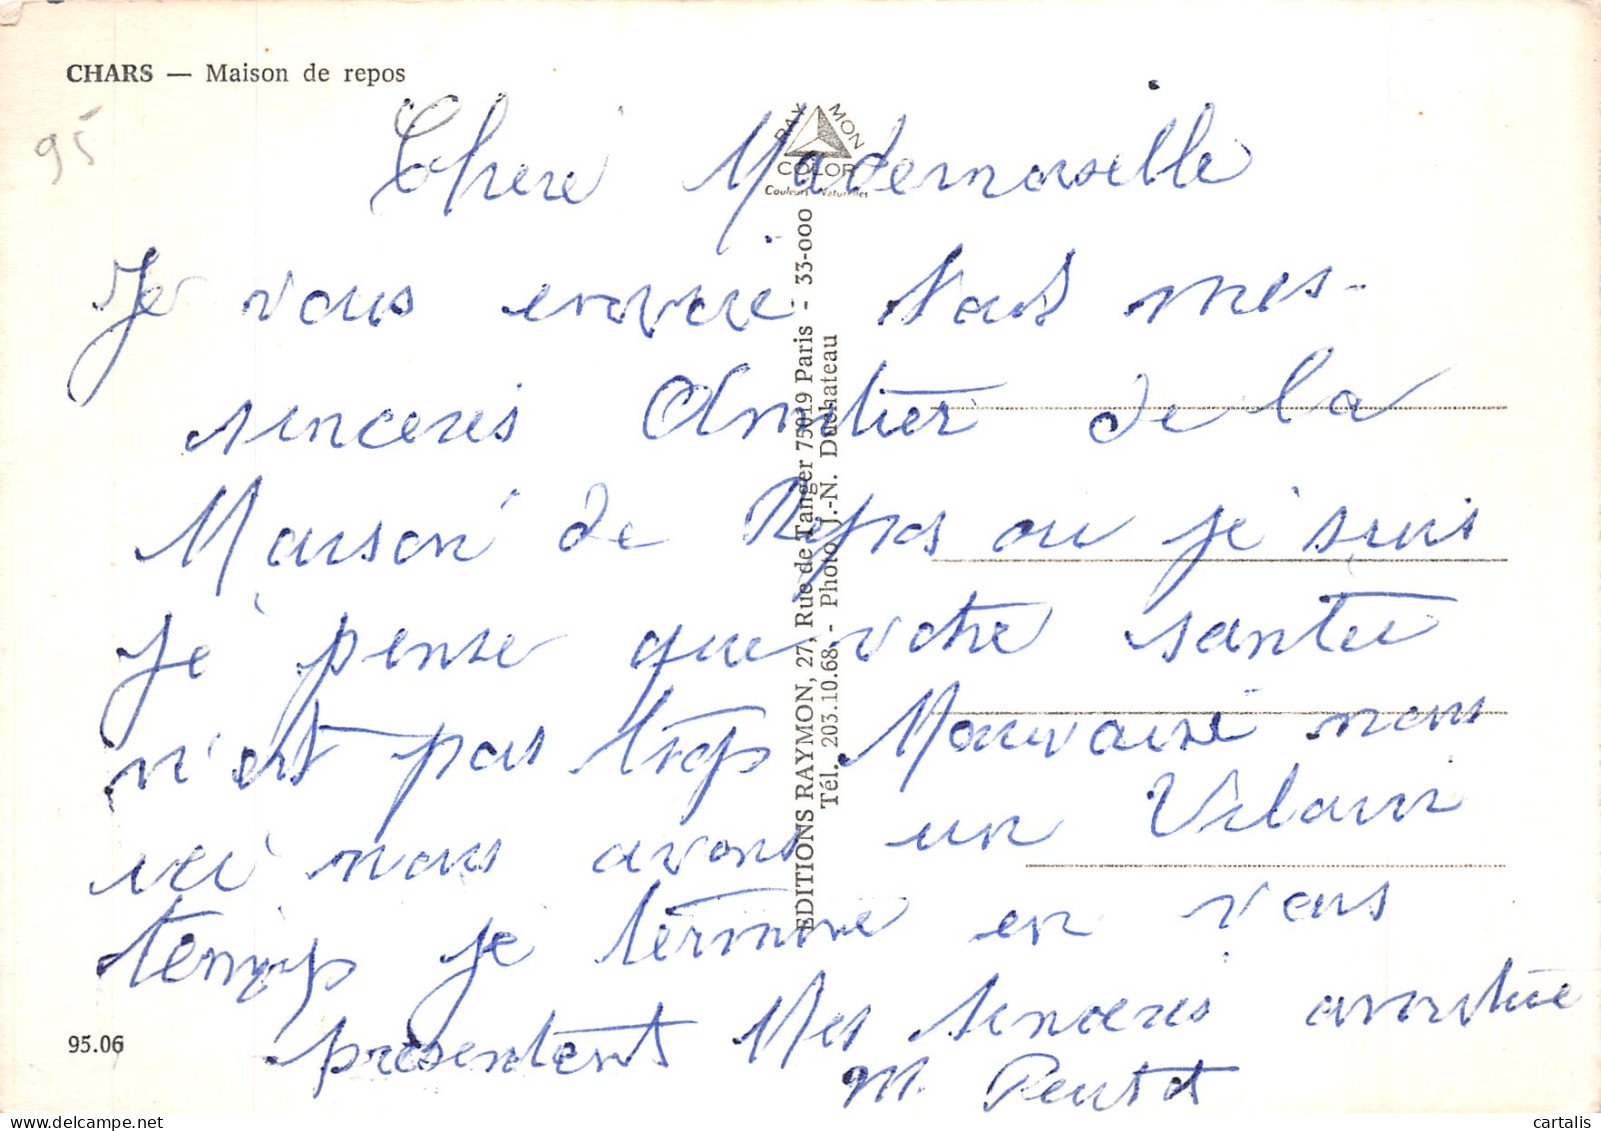 CHARS — Maison de repos
95
Chere Mademoiselle
Je vous envoie tous mes
sinceres Amitier de la
Maison de Repos ou je suis
Je pense que votre santée
n'est pas trop Mauvaise nous
ici nous avons un Vilain
temps je termine en vous
présentent Mes sinceres amitiée
M.
RAYMON
COLOR
Couleurs Naturelles
EDITIONS RAYMON, 27, Rue de Tanger 75019 Paris - 33-000
Tél. 203.10.68 - Photo J.-N. Duchateau
95.06
cartalis